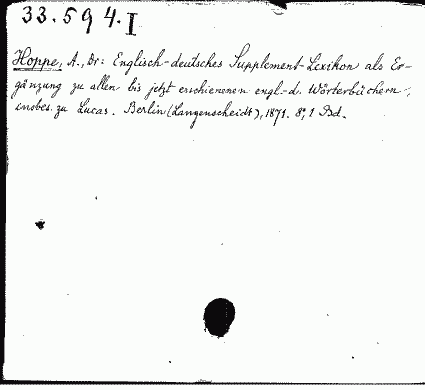 33.594.I
Hoppe, A., Dr: Englisch-deutsches Supplement-Lexikon als Er-
gänzung zu allen bis jetzt erschienenen engl.-d. Wörterbüchern,
insbes. zu Lucas. Berlin (Langenscheidt), 1871. 8°, 1 Bd.